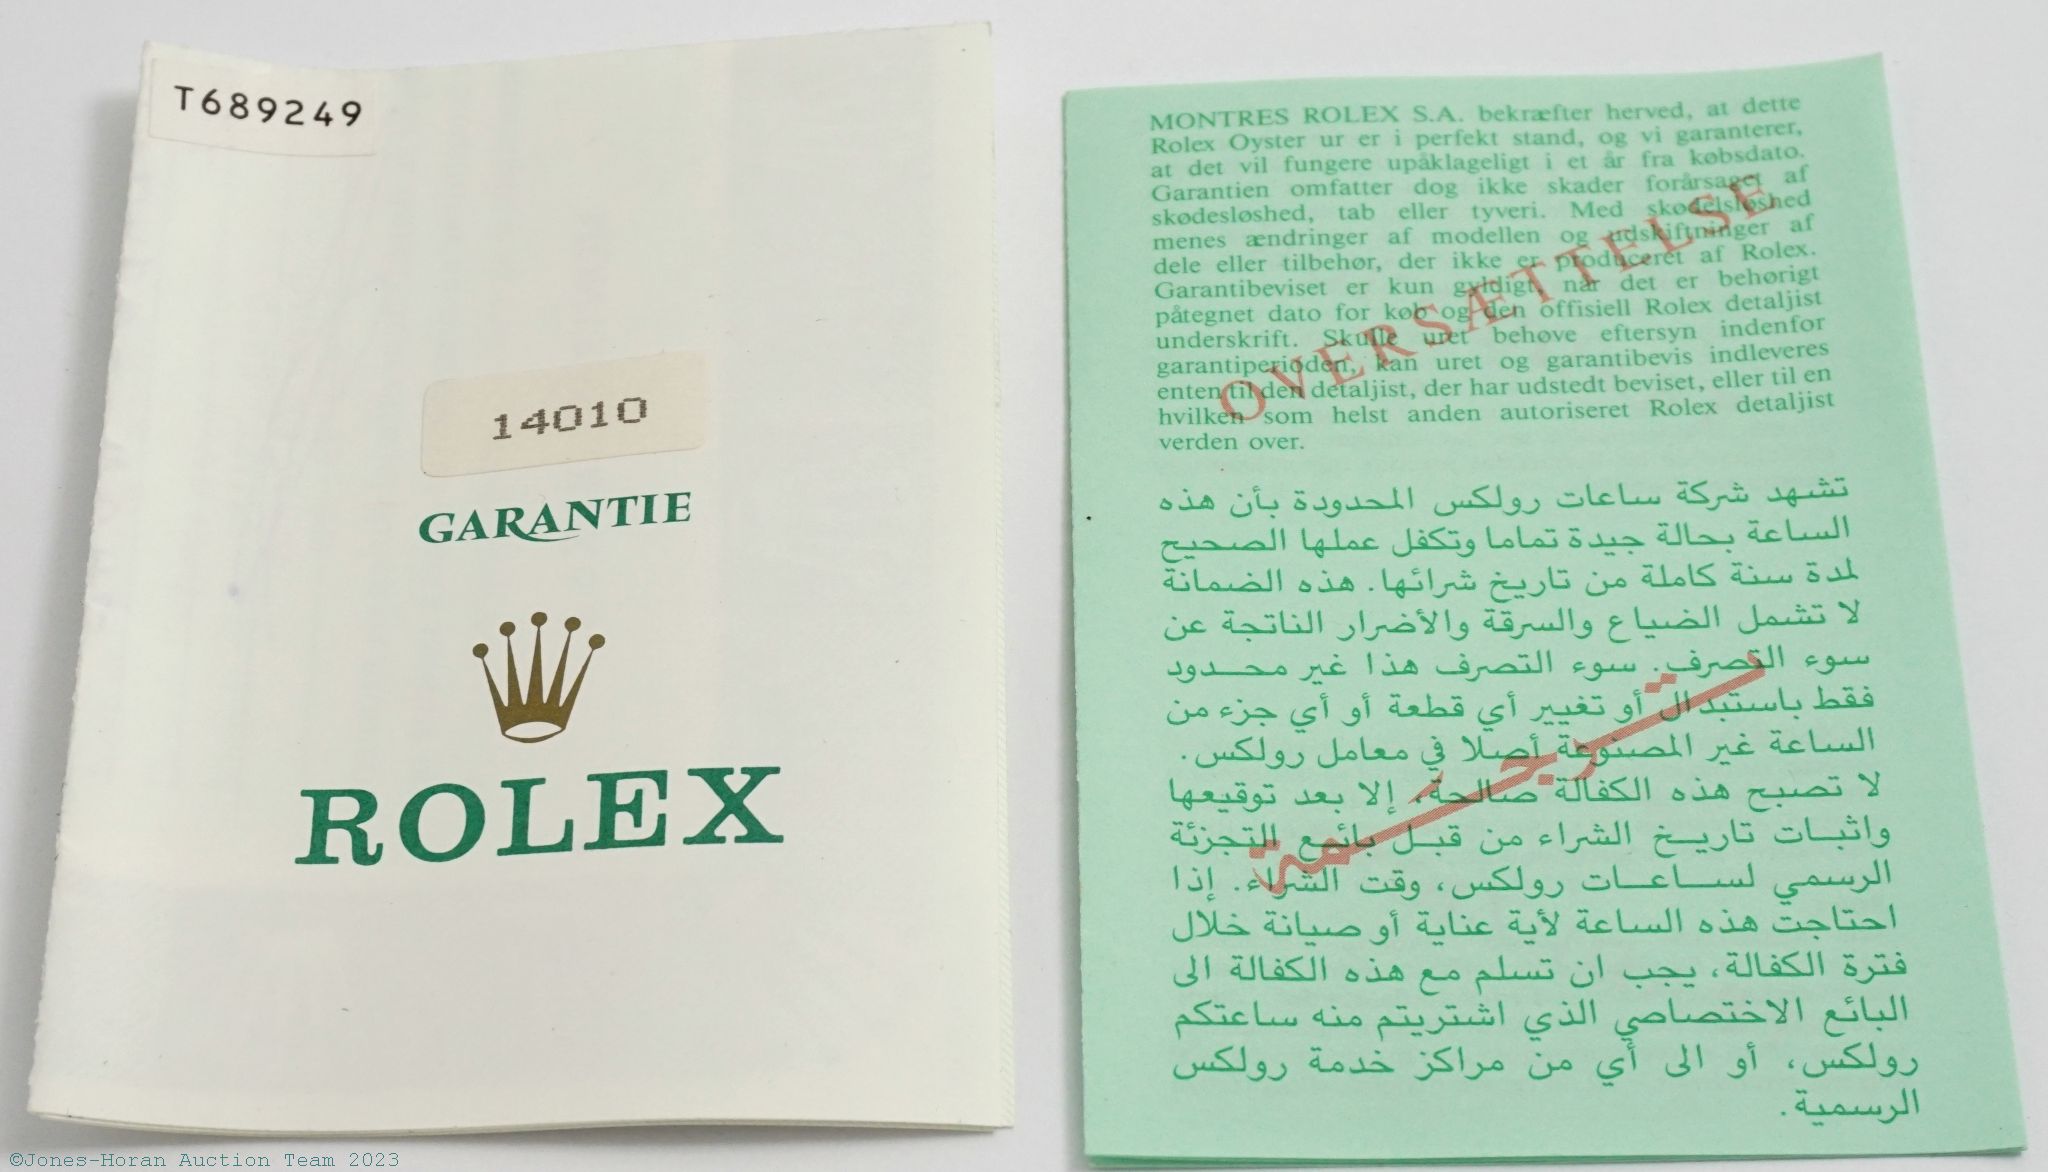 T689249
14010
GARANTIE
ROLEX
MONTRES ROLEX S.A. bekræfter herved, at dette
Rolex Oyster ur er i perfekt stand, og vi garanterer,
at det vil fungere upåklageligt i et år fra købsdato.
Garantien omfatter dog ikke skader forårsaget af
skødesløshed, tab eller tyveri. Med skødelsløshed
menes ændringer af modellen og udskiftninger af
dele eller tilbehør, der ikke er produceret af Rolex.
Garantibeviset er kun gyldigt, når det er behørigt
påtegnet dato for køb og den offisiell Rolex detaljist
underskrift. Skulle uret behøve eftersyn indenfor
garantiperioden, kan uret og garantibevis indleveres
enten til den detaljist, der har udstedt beviset, eller til en
hvilken som helst anden autoriseret Rolex detaljist
verden over.
OVERSÆTTELSE
تشهد شركة ساعات رولكس المحدودة بأن هذه
الساعة بحالة جيدة تماما وتكفل عملها الصحيح
لمدة سنة كاملة من تاريخ شرائها. هذه الضمانة
لا تشمل الضياع والسرقة والأضرار الناتجة عن
سوء التصرف. سوء التصرف هذا غير محدود
فقط باستبدال أو تغيير أي قطعة أو أي جزء من
الساعة غير المصنوعة أصلا في معامل رولكس.
لا تصبح هذه الكفالة صالحة، إلا بعد توقيعها
واثبات تاريخ الشراء من قبل بائع التجزئة
الرسمي لساعات رولكس، وقت الشراء. إذا
احتاجت هذه الساعة لأية عناية أو صيانة خلال
فترة الكفالة، يجب ان تسلم مع هذه الكفالة الى
البائع الاختصاصي الذي اشتريتم منه ساعتكم
رولكس، أو الى أي من مراكز خدمة رولكس
الرسمية.
ترجمة
©Jones-Horan Auction Team 2023